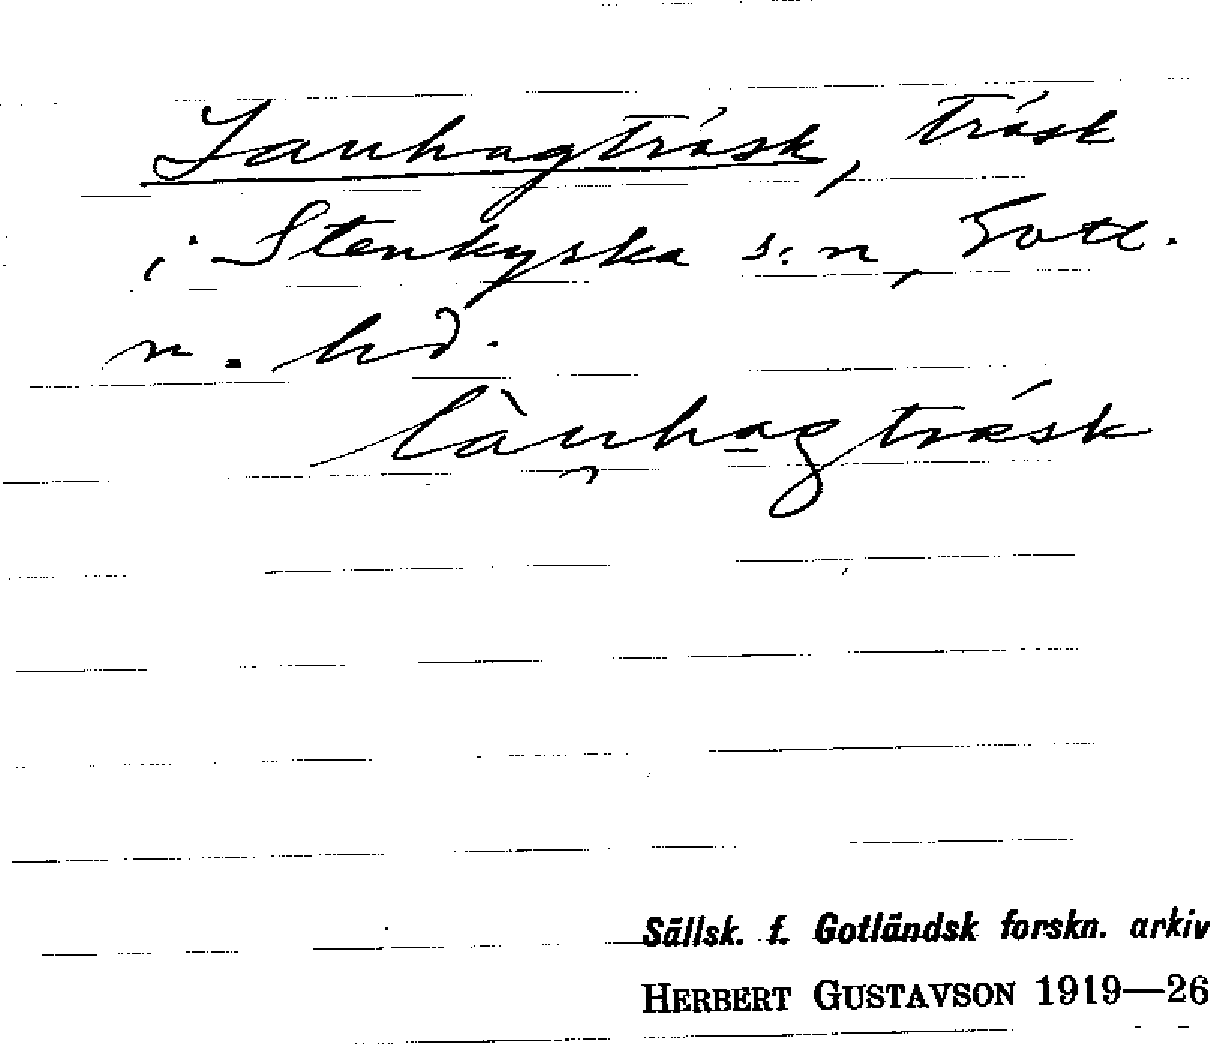 Lauhagträsk, träsk
i Stenkyrka s:n, Gotl.
n. hd.
làu̯hagträsk
Sällsk. f. Gotländsk forskn. arkiv
HERBERT GUSTAVSON 1919—26